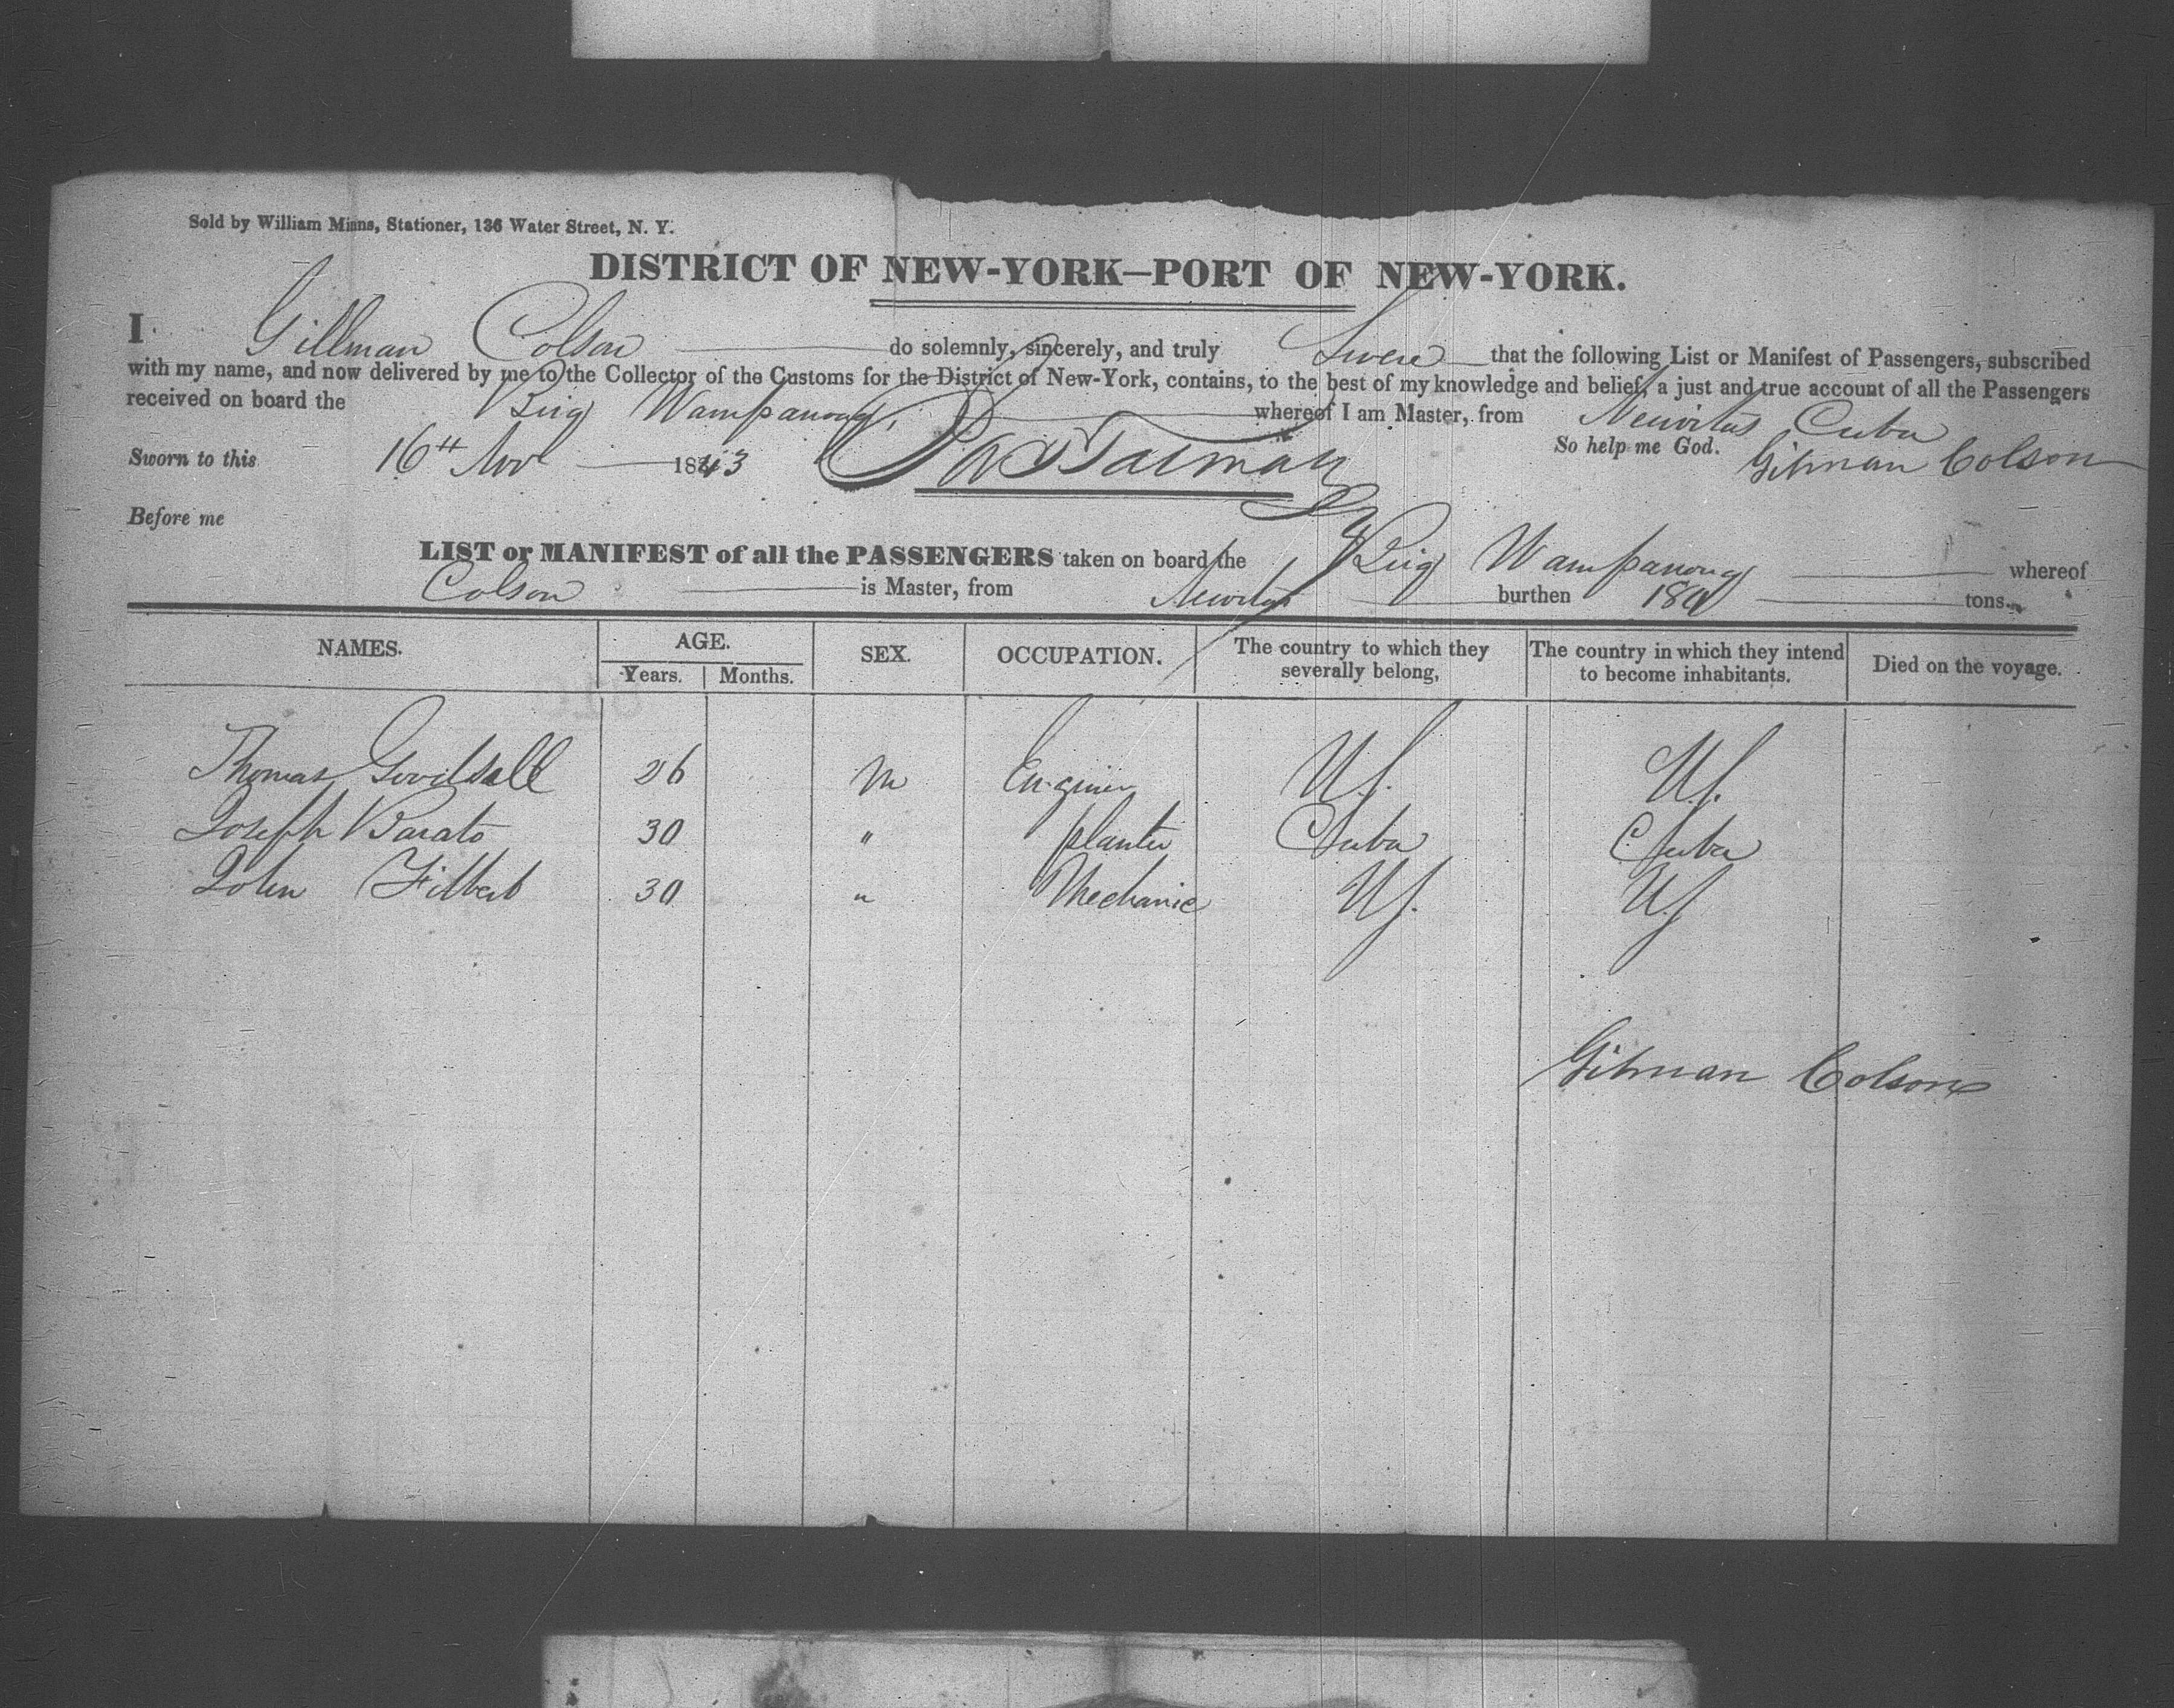 Sold by William Minns, Stationer, 136 Water Street, N. Y.
DISTRICT OF NEW-YORK—PORT OF NEW-YORK.
I Gillman Colson do solemnly, sincerely, and truly Swear that the following List or Manifest of Passengers, subscribed
with my name, and now delivered by me to the Collector of the Customs for the District of New-York, contains, to the best of my knowledge and belief, a just and true account of all the Passengers
received on board the Brig Wampanoag, whereof I am Master, from Neuvitas Cuba
So help me God.
Sworn to this 16th Nov 1843 Gilman Colson
Before me
LIST or MANIFEST of all the PASSENGERS taken on board the Brig Wampanoag whereof
Colson is Master, from Neuvitas burthen tons.
NAMES. AGE. SEX. OCCUPATION. The country to which they severally belong, The country in which they intend to become inhabitants. Died on the voyage.
Years. Months.
Thomas 26 M Enginer U.S. U.S.
Joseph Barato 30 " planter Cuba Cuba
John Filbert 30 " Mechanic US. U.S
Gilman Colson